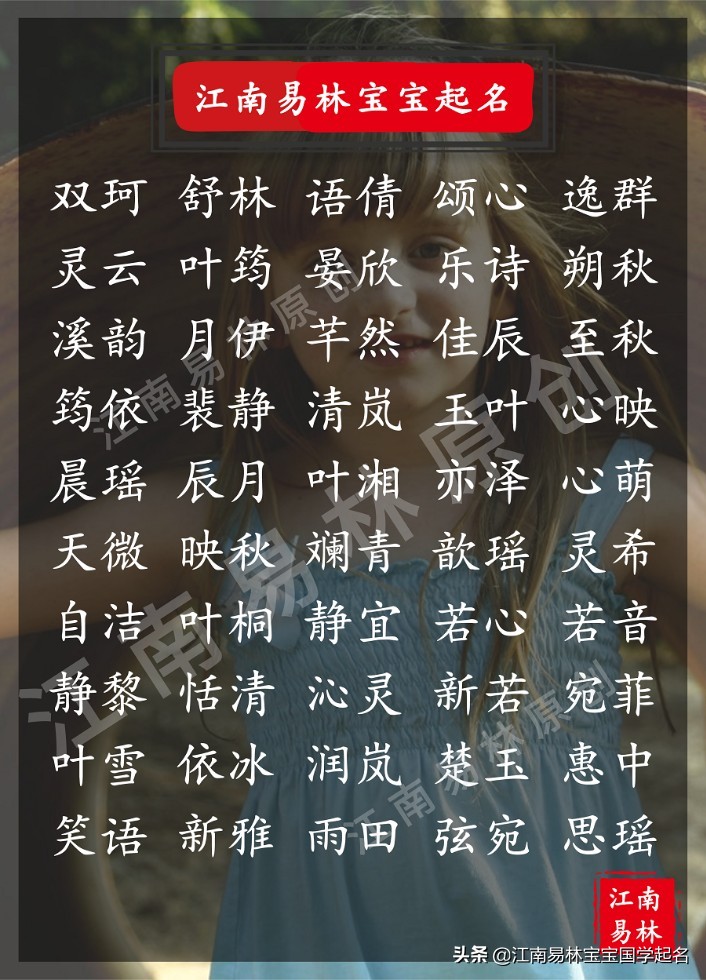 江南易林宝宝起名
双珂 舒林 语倩 颂心 逸群
灵云 叶筠 晏欣 乐诗 朔秋
溪韵 月伊 芊然 佳辰 至秋
筠依 裴静 清岚 玉叶 心映
晨瑶 辰月 叶湘 亦泽 心萌
天微 映秋 斓青 歆瑶 灵希
自洁 叶桐 静宜 若心 若音
静黎 恬清 沁灵 新若 宛菲
叶雪 依冰 润岚 楚玉 惠中
笑语 新雅 雨田 弦宛 思瑶
江南易林原创
江南易林原创
江南易林原创
江南
易林
头条 @江南易林宝宝国学起名